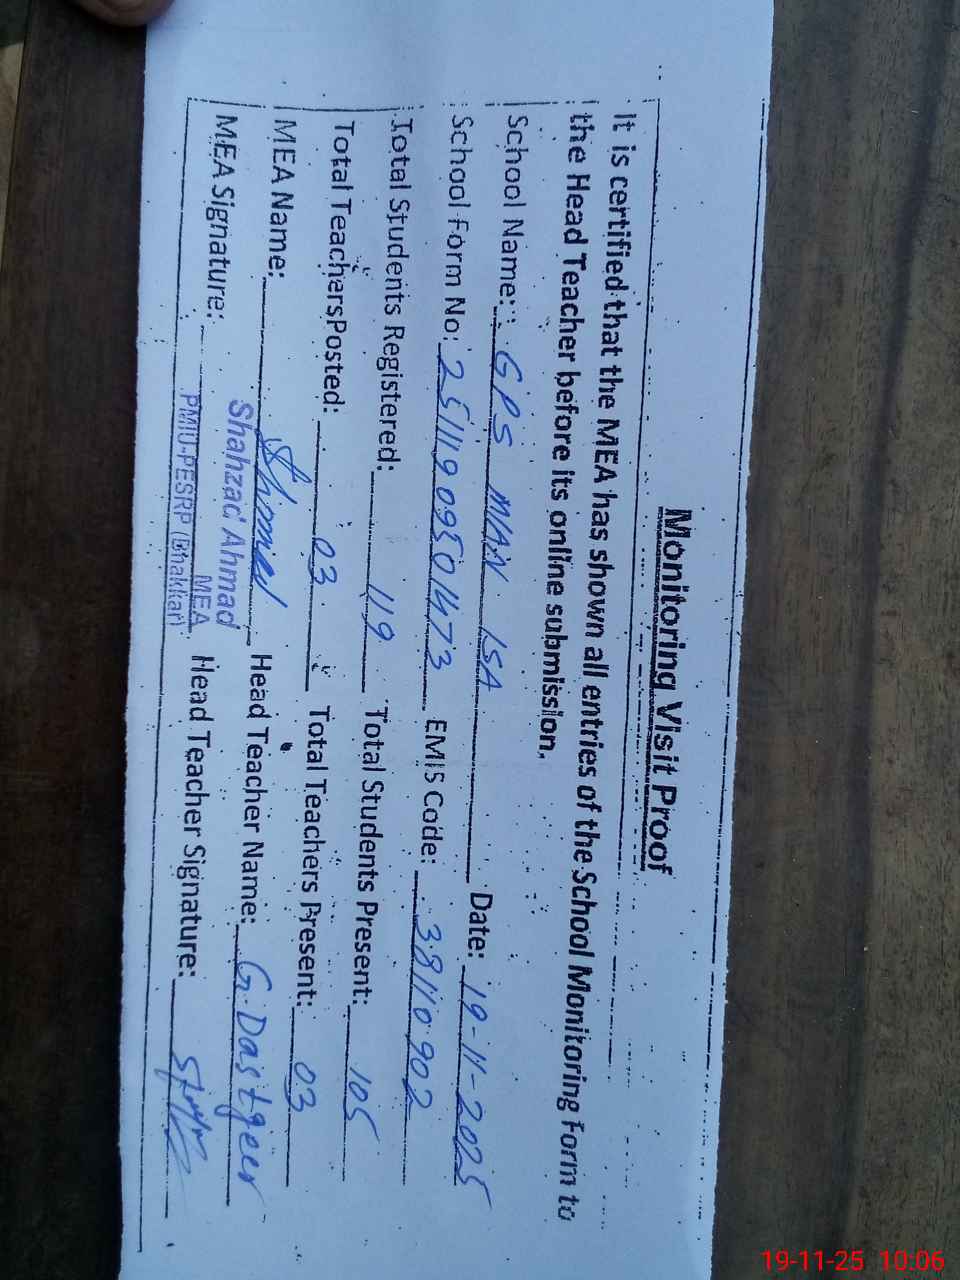 Monitoring Visit Proof
It is certified that the MEA has shown all entries of the School Monitoring Form to
the Head Teacher before its online submission.
School Name: GPS MIAN ISA Date: 19-11-2025
School Form No: 25111909501473 EMIS Code: 38110902
Total Students Registered: 119 Total Students Present: 105
Total TeachersPosted: 03 Total Teachers Present: 03
MEA Name: Head Teacher Name: G. Dastgeer
Shahzad Ahmad
MEA
MEA Signature: Head Teacher Signature:
PMIU-PESRP (Bhakkar)
19-11-25 10:06